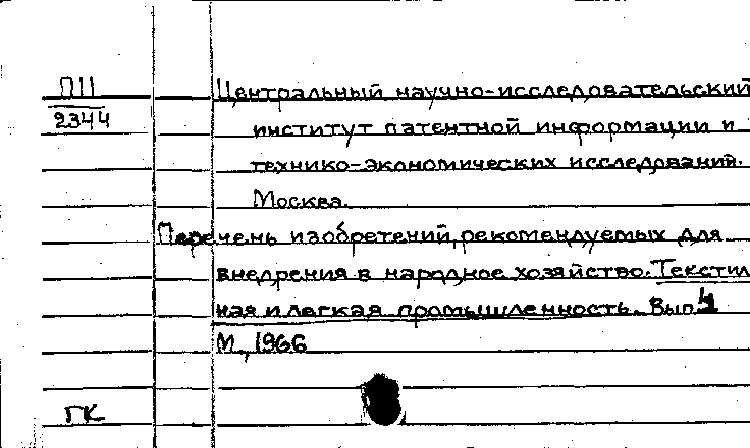 П11
2344
Центральный научно-исследовательский
институт патентной информации и
технико-экономических исследований.
Москва.
Перечень изобретений, рекомендуемых для
внедрения в народное хозяйство. Текстил
ная и легкая промышленность. Вып. 4
М., 1966
ГК